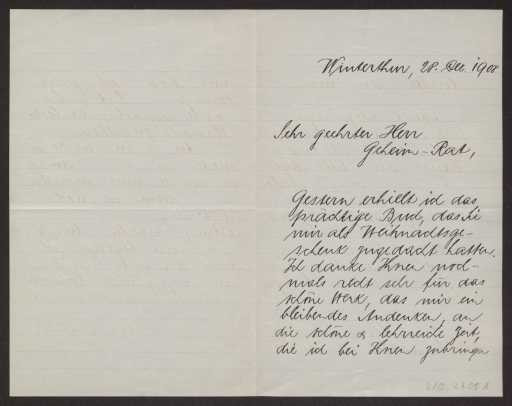 Winterthur, 28. Dez. 1908
Sehr geehrter Herr
Geheim-Rat,
Gestern erhielt ich das
prächtige Buch, das Sie
mir als Weihnachtsge-
schenk zugedacht hatten.
Ich danke Ihnen noch-
mals recht sehr für das
schöne Werk, das mir ein
bleibendes Andenken, an
die schöne & lehrreiche Zeit,
die ich bei Ihnen zubringen